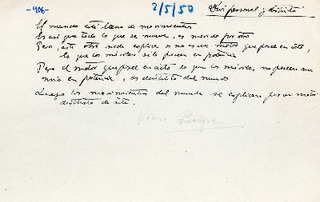 -906-
2/5/50
Dios personal y distinto
El mundo está lleno de movimientos
Es así que todo lo que se mueve, es movido por otro
Pero, este otro nada explica si no es un motor que posee en acto,
lo que los móviles sólo poseen en potencia
Pero el motor que posee en acto lo que los móviles no poseen sino
en potencia, es distinto del mundo
Luego los movimientos del mundo se explican por un motor
distinto de éste.